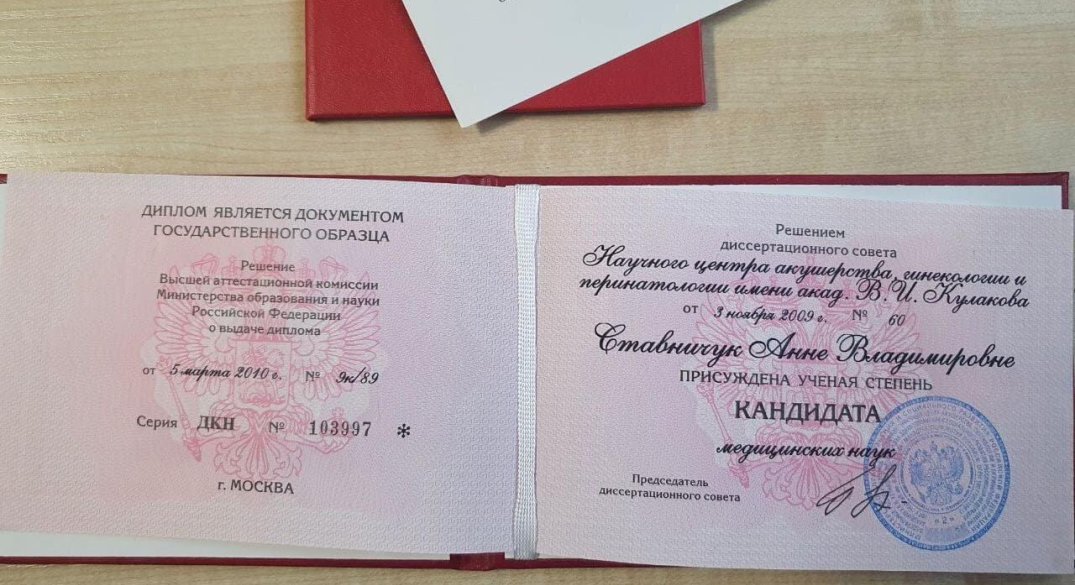 ДИПЛОМ ЯВЛЯЕТСЯ ДОКУМЕНТОМ
ГОСУДАРСТВЕННОГО ОБРАЗЦА
Решение
Высшей аттестационной комиссии
Министерства образования и науки
Российской Федерации
о выдаче диплома
от 5 марта 2010 г. № 9к/89
Серия ДКН № 103997 *
г. МОСКВА
Решением
диссертационного совета
Научного центра акушерства, гинекологии и
перинатологии имени акад. В.И. Кулакова
от 3 ноября 2009 г. № 60
Ставничук Анне Владимировне
ПРИСУЖДЕНА УЧЕНАЯ СТЕПЕНЬ
КАНДИДАТА
медицинских наук
Председатель
диссертационного совета
«2»